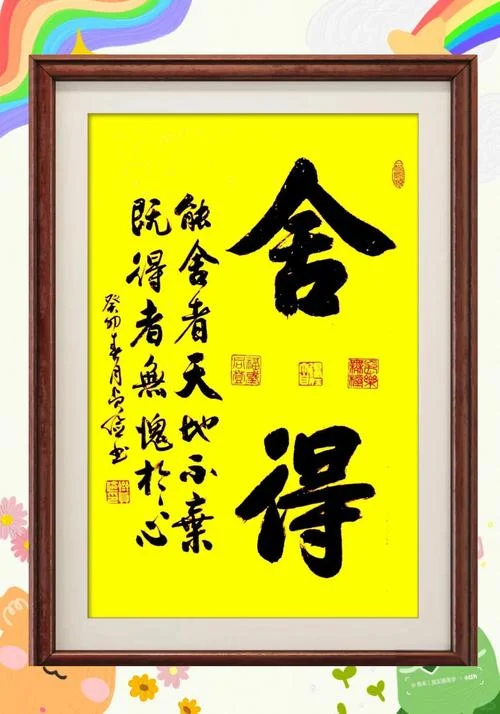 舍得
能舍者天地不棄
既得者無愧於心
癸卯春月貞俭书